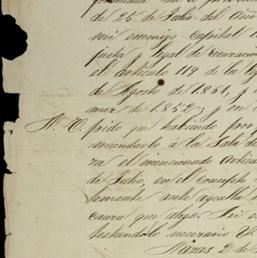 de 25 de Julio del Año
mi enemigo Capital
justa y legal de recusacion
el articulo 114 de la
de Agosto de 1851, y
mez de 1852; y en
A. V. pido que habiendo por
mandarlo á la Sala de
za el mencionado Articu
de Julio, en el concepto
lemente ante aquella
causa que dejo.
testando lo necesario V.
2 de